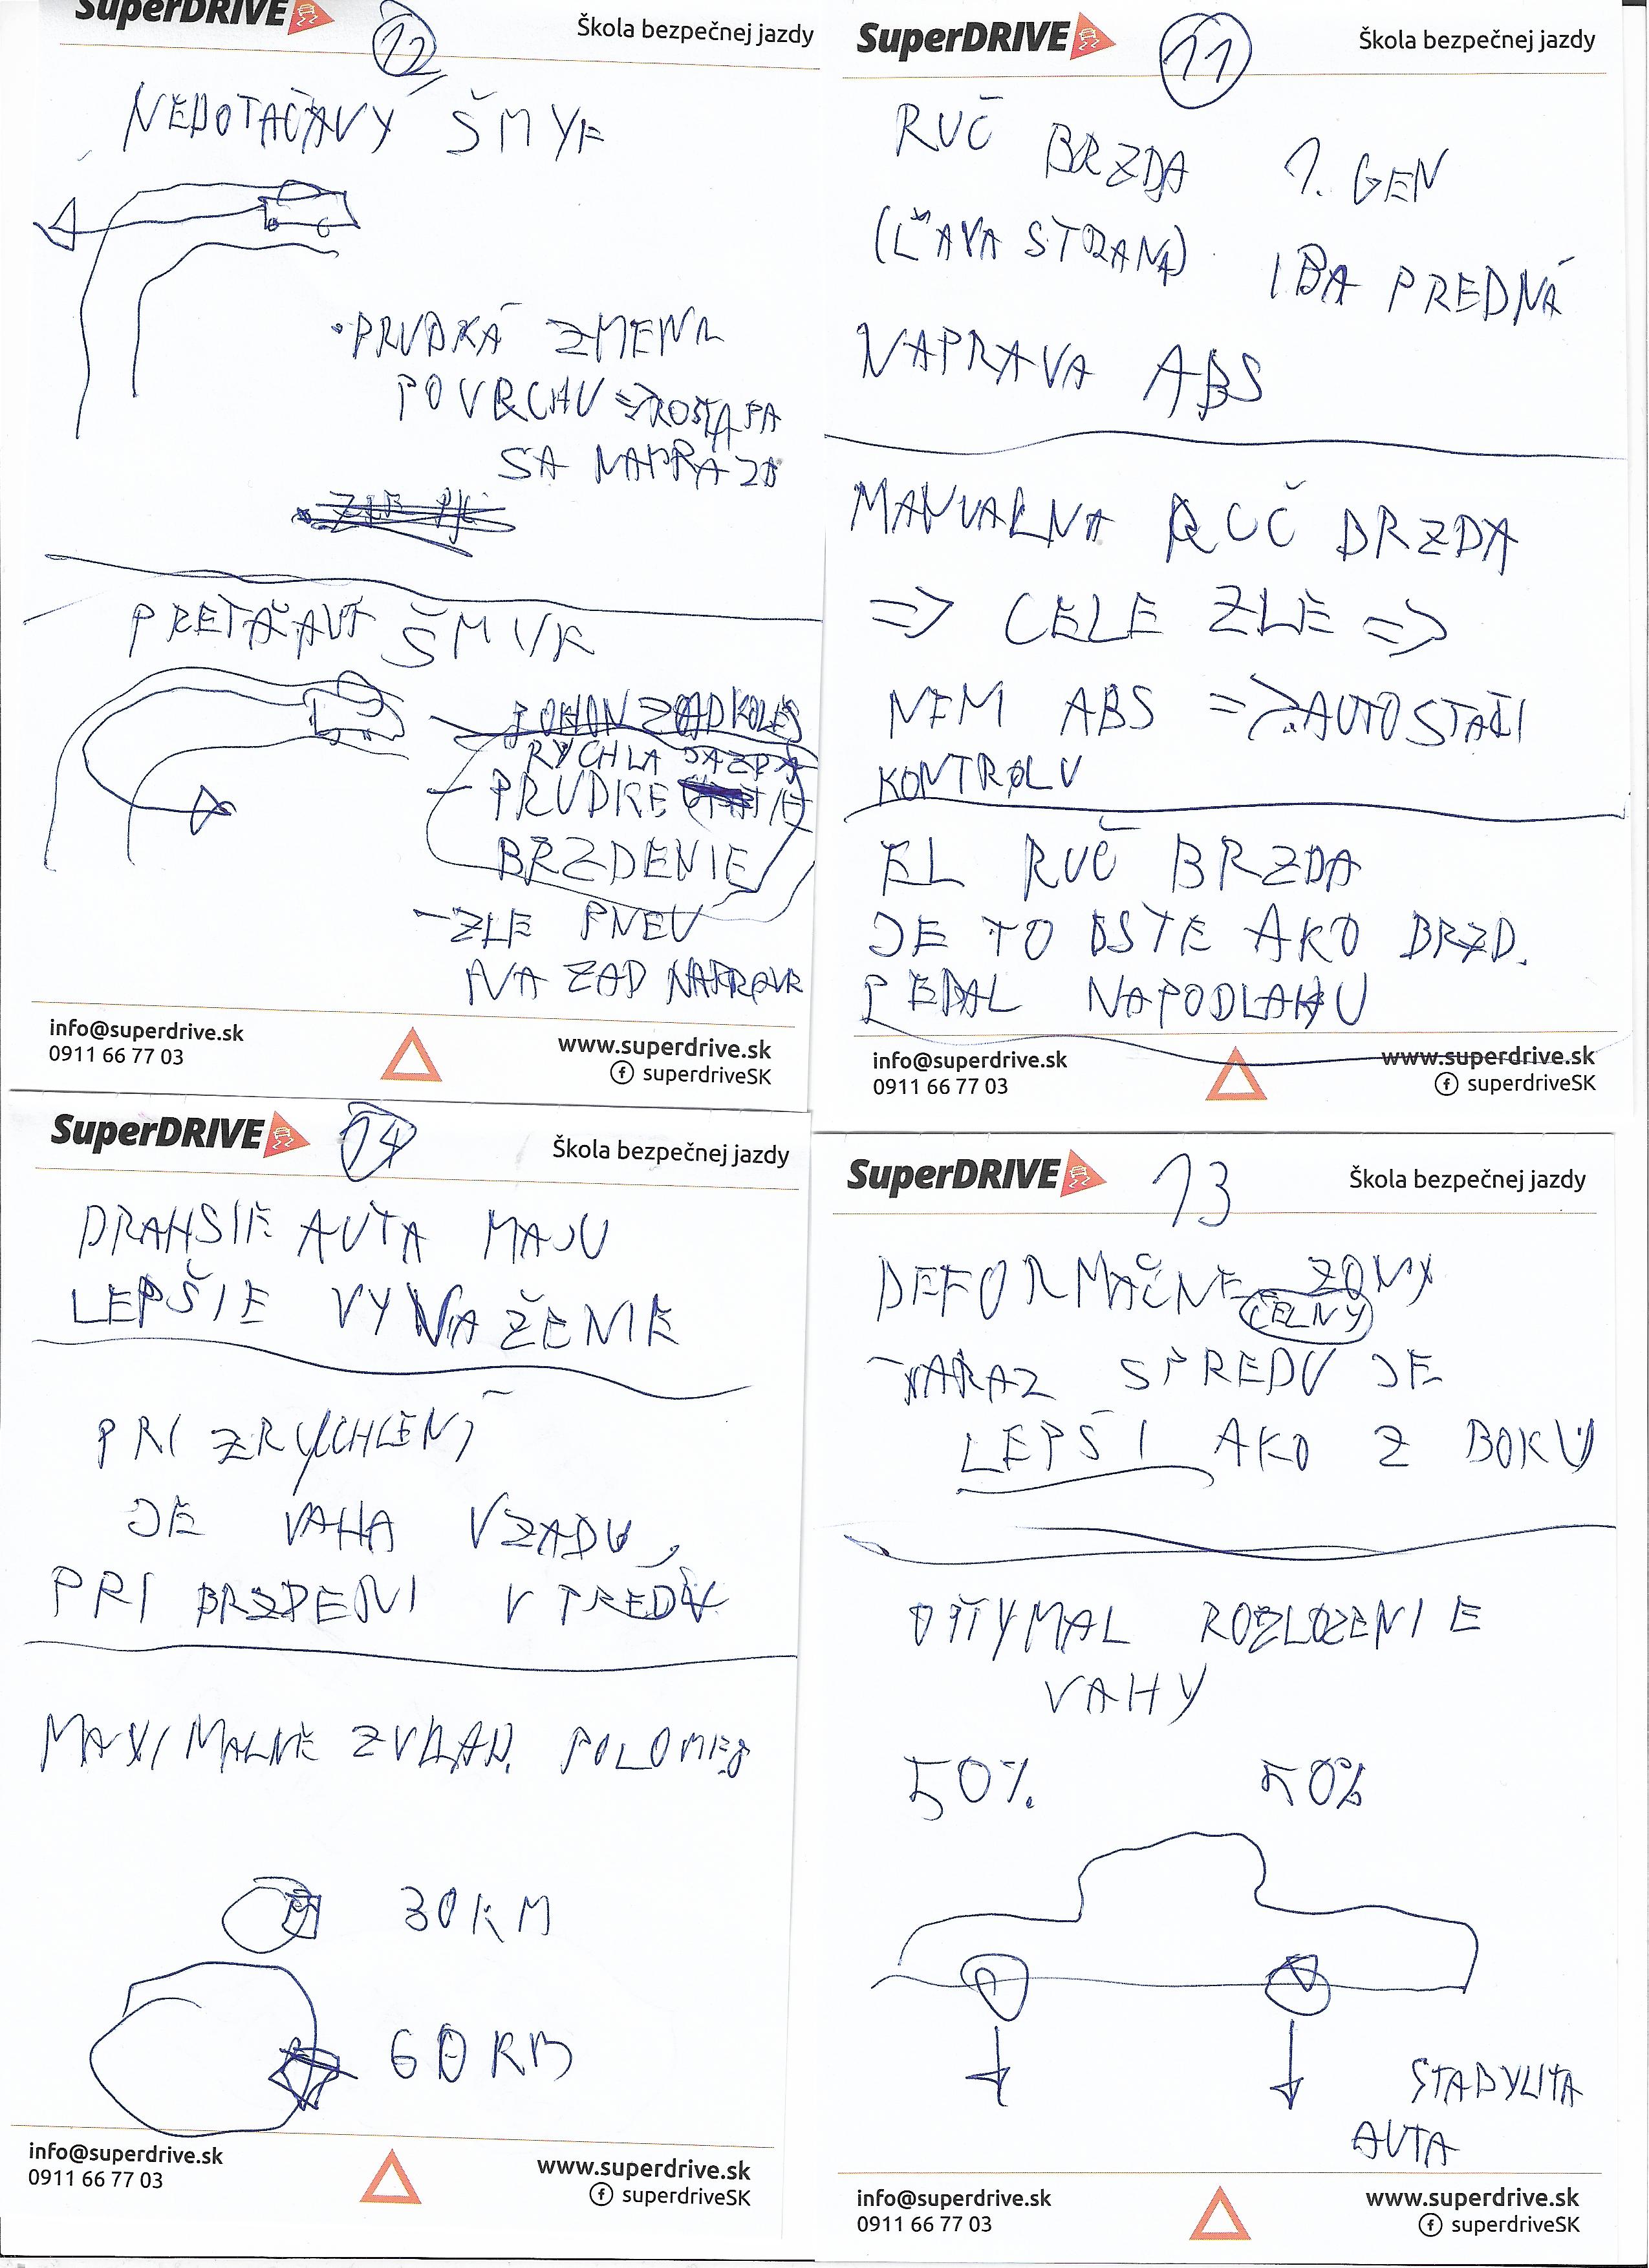 SuperDRIVE
12
Škola bezpečnej jazdy
NEDOTAČAVÝ ŠMYK
• PRUDKÁ ZMENA
POVRCHU =>
SA
PRETÁČAVÝ ŠMYK
POHON ZAD KOLES
RYCHLA JAZDA
- PRUDKE
BRZDENIE
- ZLE PNEU
NA ZAD NAPRAVE
info@superdrive.sk
0911 66 77 03
www.superdrive.sk
superdriveSK
SuperDRIVE
11
Škola bezpečnej jazdy
RUČ BRZDA 1. GEN
(ĽAVA STRANA) IBA PREDNÁ
NAPRAVA ABS
MANUALNA RUČ BRZDA
=> CELE ZLE =>
NEM ABS => AUTO STAČI
KONTROLU
EL RUČ BRZDA
JE TO ISTE AKO BRZD.
PEDAL NAPODLAHU
info@superdrive.sk
0911 66 77 03
www.superdrive.sk
superdriveSK
SuperDRIVE
14
Škola bezpečnej jazdy
DRAHSIE AUTA MAJU
LEPŠIE VYVAŽENIE
PRI ZRYCHLENI
JE VAHA VZADU,
PRI BRZDENI V PREDU
MAXIMALNE ZVLAD. POLOMER
30 KM
60 KM
info@superdrive.sk
0911 66 77 03
www.superdrive.sk
superdriveSK
SuperDRIVE
13
Škola bezpečnej jazdy
DEFORMAČNE ZONY
ČELNY
- NÁRAZ SPREDU JE
LEPŠI AKO Z BOKU
OPTYMAL ROZLOZENIE
VAHY
50% 50%
STABYLITA
AUTA
info@superdrive.sk
0911 66 77 03
www.superdrive.sk
superdriveSK